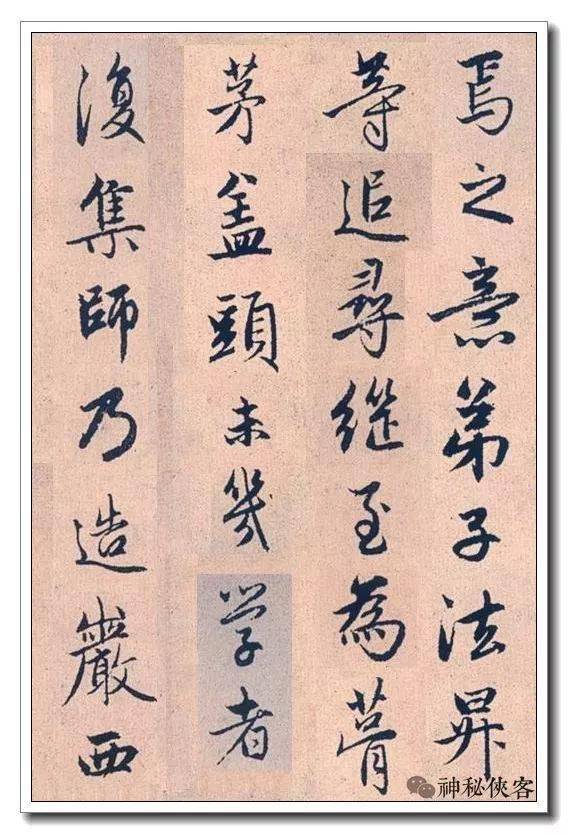 焉之意弟子法昇
等追尋継至為葺
茅盖頭未幾学者
復集師乃造嚴西
神秘侠客